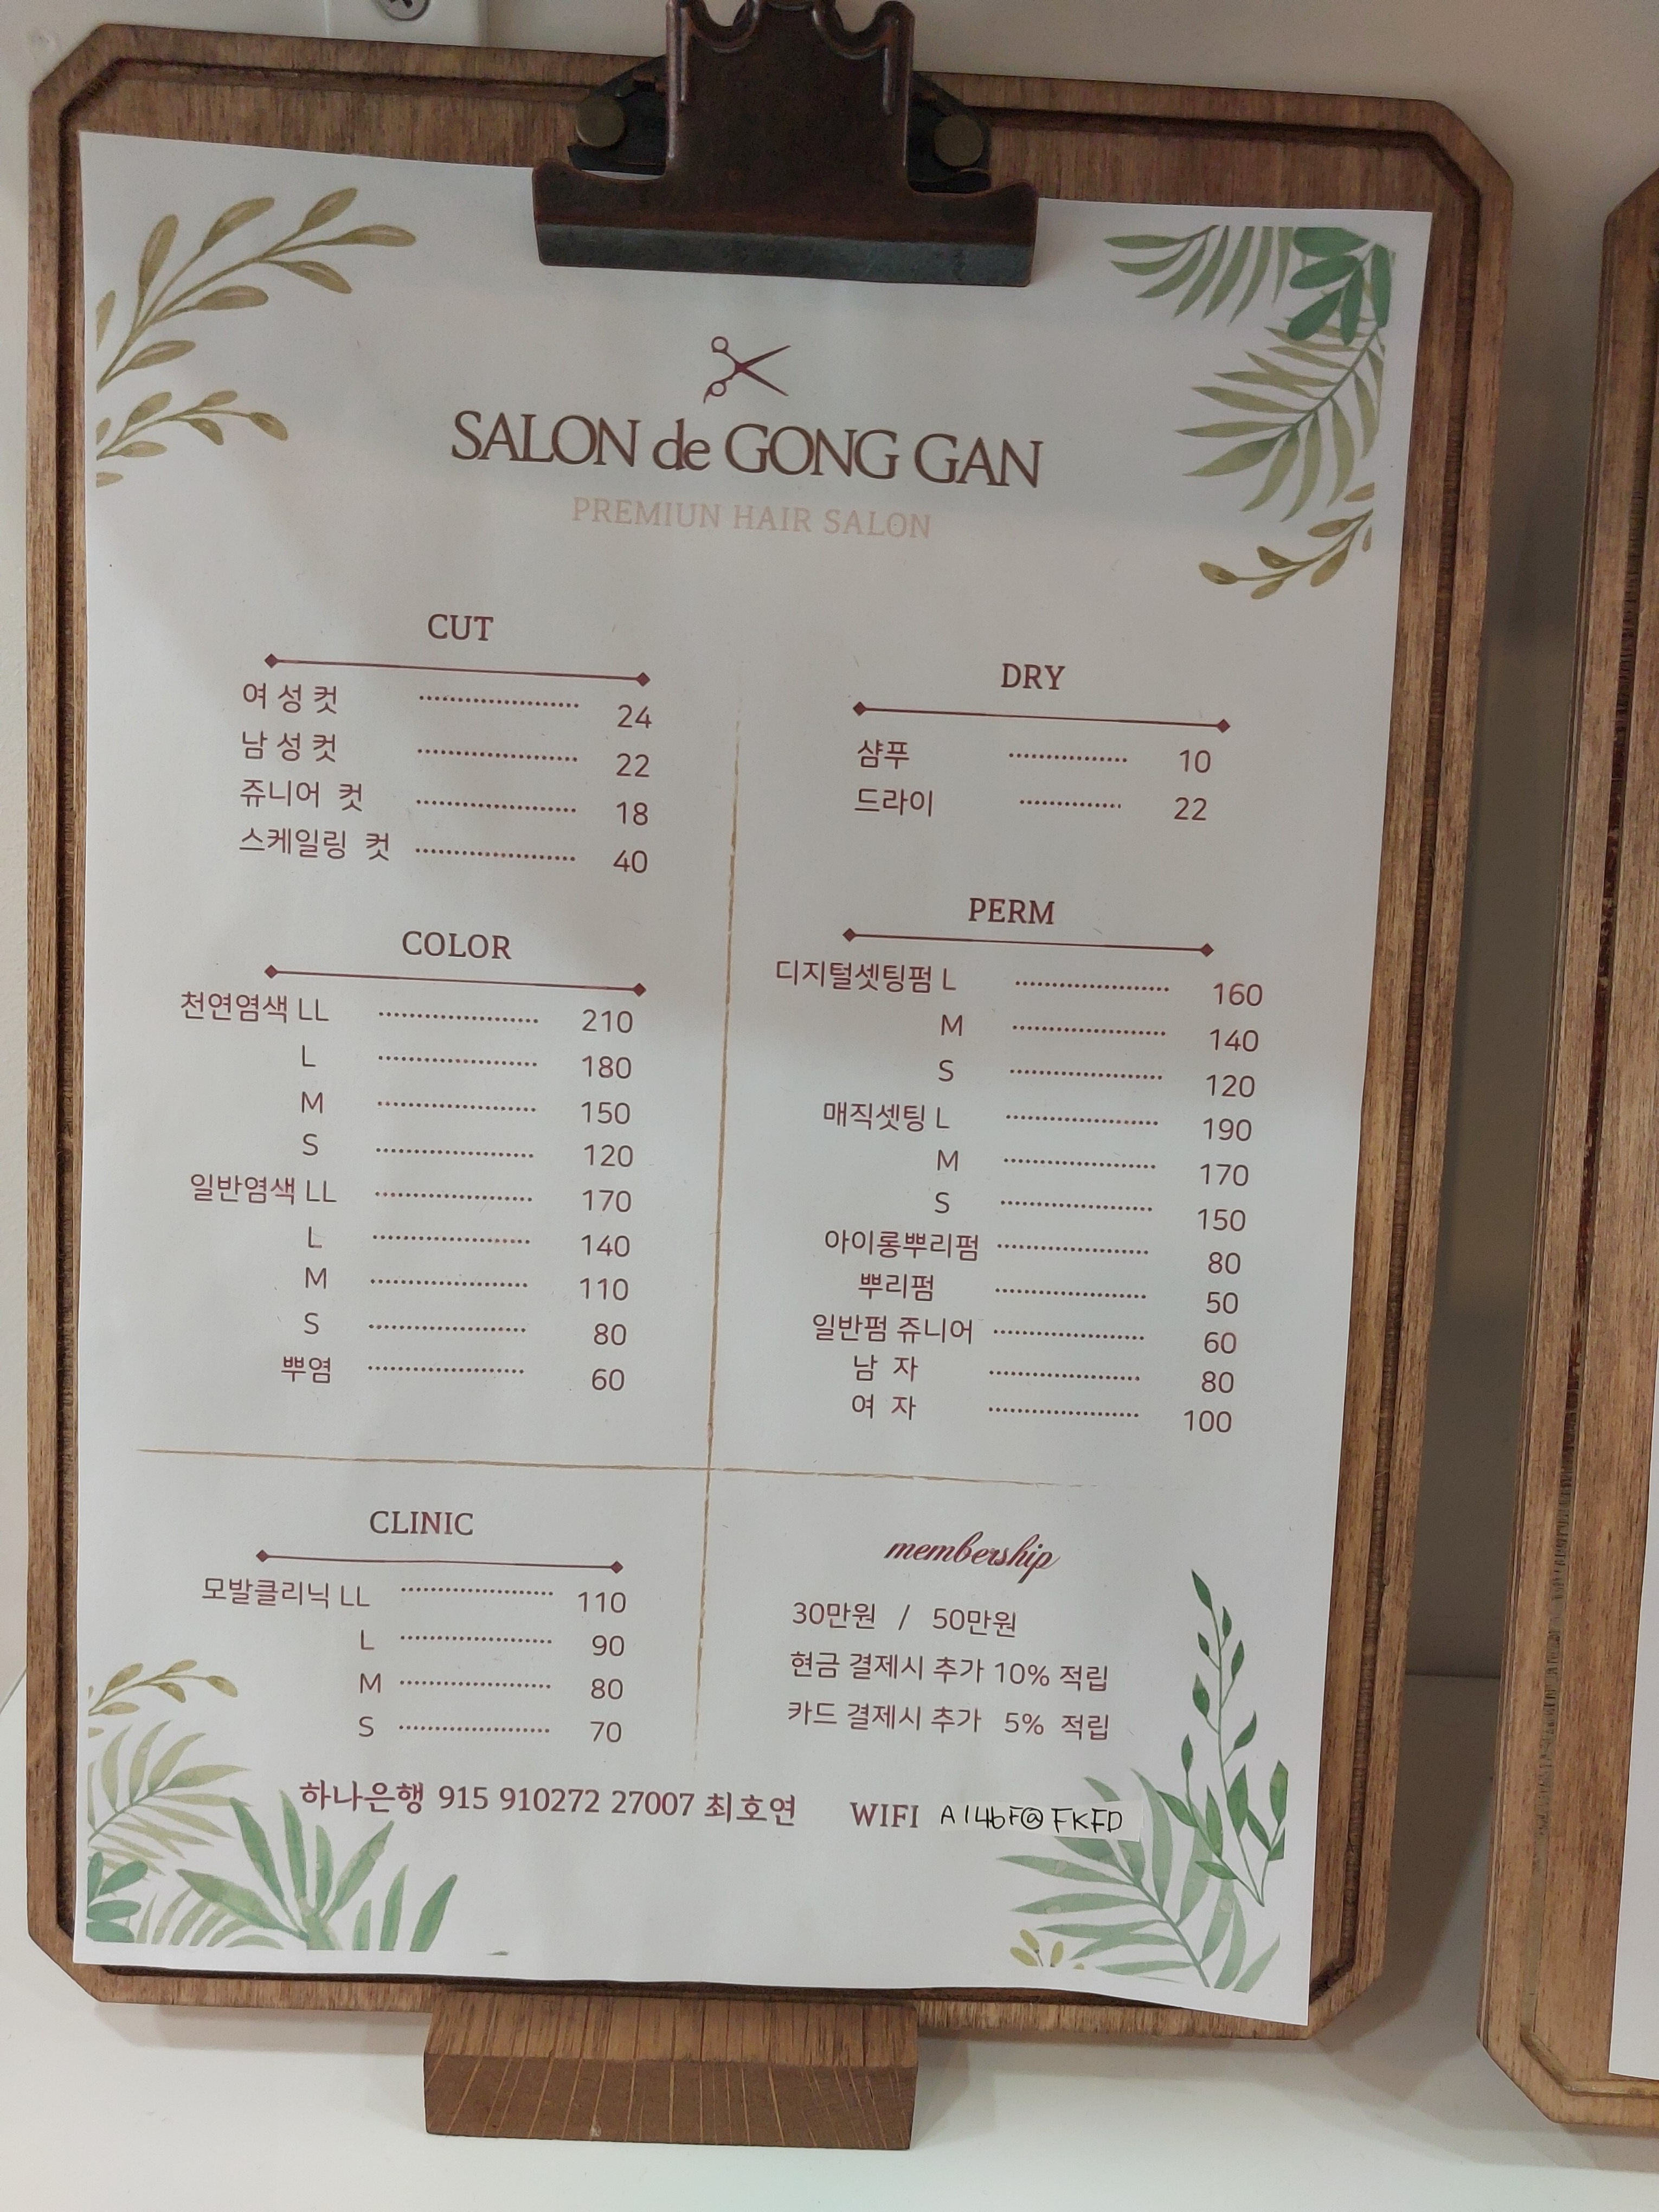 SALON de GONG GAN
PREMIUN HAIR SALON
CUT
여 성 컷 ........................ 24
남 성 컷 ........................ 22
쥬니어 컷 ........................ 18
스케일링 컷 ........................ 40
COLOR
천연염색 LL ........................ 210
L ........................ 180
M ........................ 150
S ........................ 120
일반염색 LL ........................ 170
L ........................ 140
M ........................ 110
S ........................ 80
뿌염 ........................ 60
DRY
샴푸 .................. 10
드라이 ............... 22
PERM
디지털셋팅펌 L ........................ 160
M ........................ 140
S ........................ 120
매직셋팅 L ........................ 190
M ........................ 170
S ........................ 150
아이롱뿌리펌 ........................ 80
뿌리펌 ........................ 50
일반펌 쥬니어 ........................ 60
남 자 ........................ 80
여 자 ........................ 100
CLINIC
모발클리닉 LL ........................ 110
L ........................ 90
M ........................ 80
S ........................ 70
membership
30만원 / 50만원
현금 결제시 추가 10% 적립
카드 결제시 추가 5% 적립
하나은행 915 910272 27007 최호연 WIFI A146F@FKFD